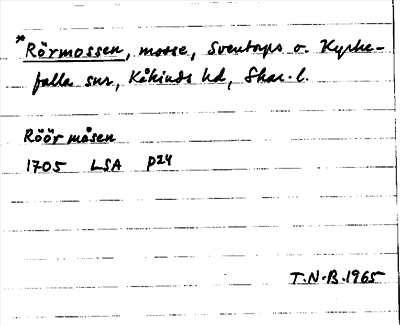 *Rörmossen, mosse, Sventorps o. Kyrke-
falla snr, Kåkinds hd, Skar. l.
Röör måsen
1705 LSA P24
T.N-B.1965